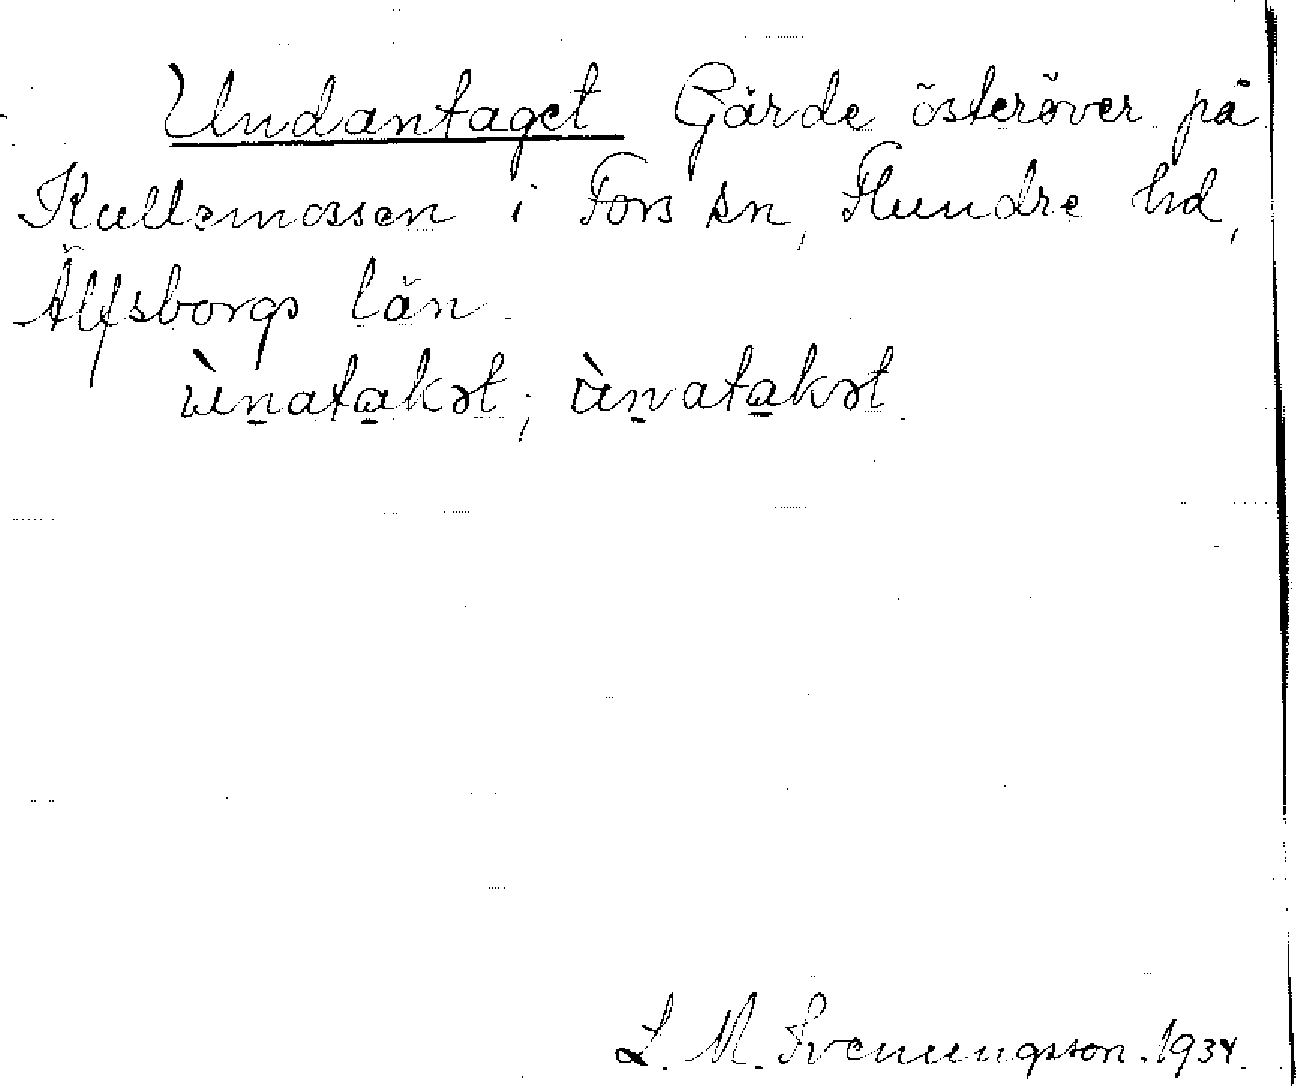 Undantaget Gärde österöver på
Kullemossen i Fors sn, Flundre hd,
Älfsborgs län.
ùn̲ata̲kət; ùn̲ata̲kət.
L. M. Svenungsson. 1934.